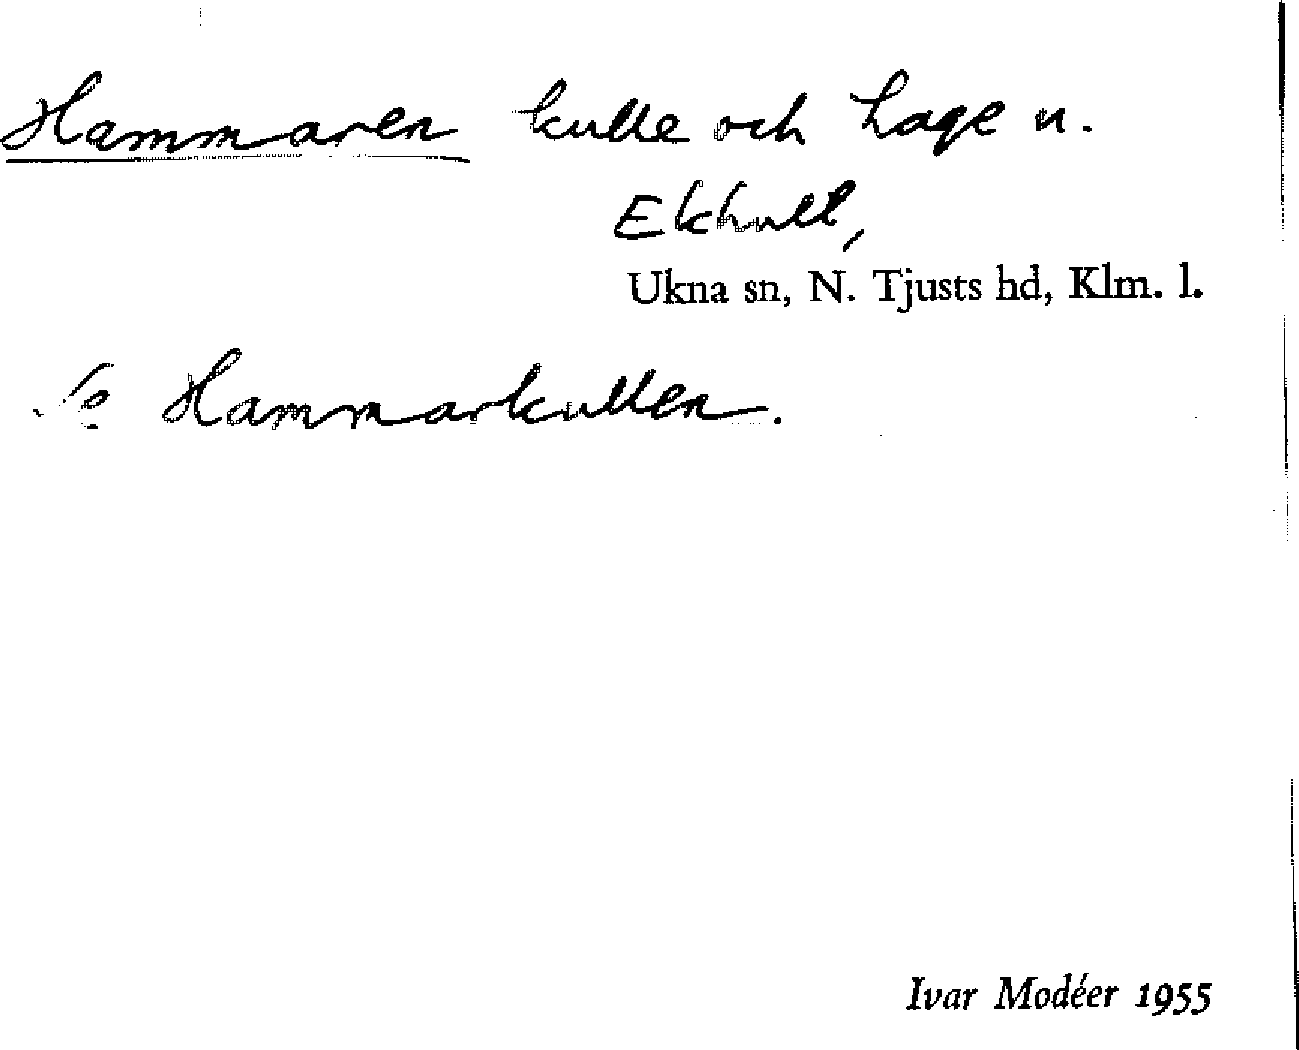 Hammaren kulle och hage u.
Ekhult,
Ukna sn, N. Tjusts hd, Klm. l.
Se Hammarkullen.
Ivar Modéer 1955